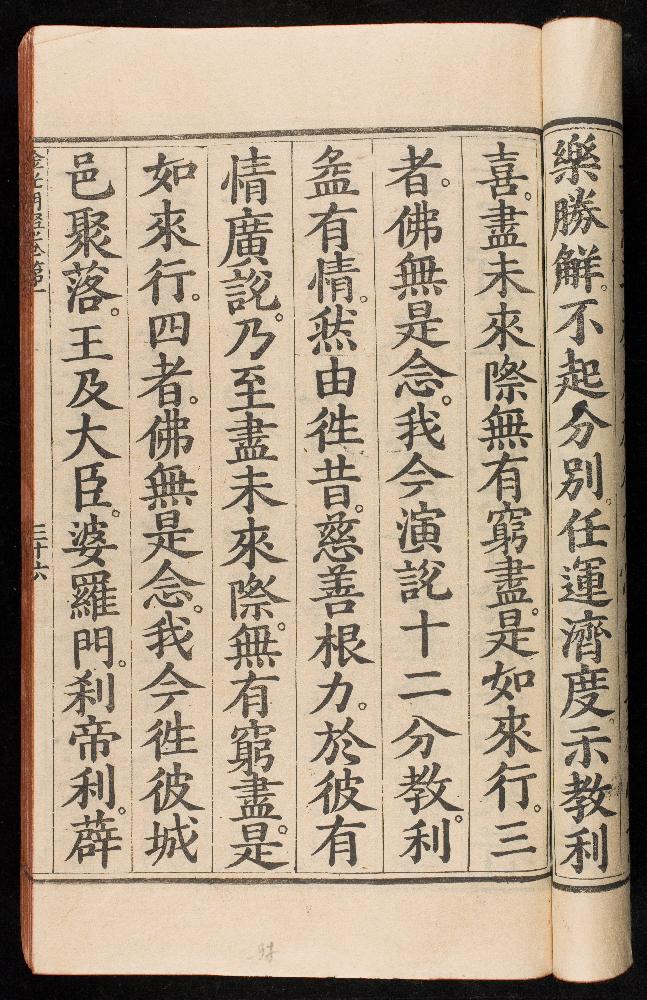 樂勝解。不起分別。任運濟度。示教利
喜。盡未來際無有窮盡。是如來行。三
者。佛無是念。我今演說十二分教。利
益有情。然由徃昔。慈善根力。於彼有
情廣說。乃至盡未來際。無有窮盡。是
如來行。四者。佛無是念。我今徃彼城
邑聚落。王及大臣。婆羅門。刹帝利。薜
金光明經卷第一
三十六